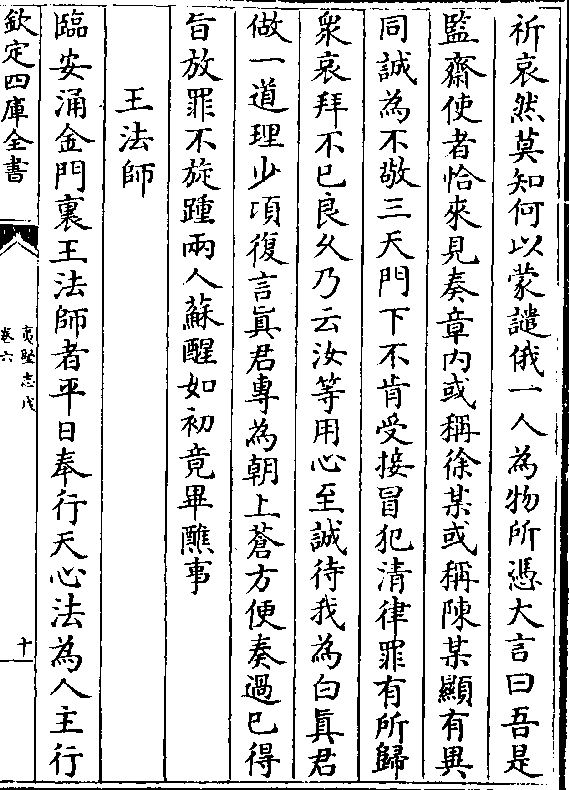 祈哀然莫知何以蒙譴俄一人為物所憑大言曰吾是
監齋使者恰來見奏章内或稱徐某或稱陳某顯有異
同誠為不敬三天門下不肯受接冒犯清律罪有所歸
衆哀拜不已良久乃云汝等用心至誠待我為白眞君
做一道理少頃復言眞君專為朝上蒼方便奏過已得
旨放罪不旋踵兩人蘇醒如初竟畢醮事
王法師
臨安涌金門裏王法師者平日奉行天心法為人主行
欽定四庫全書
夷堅志戊
卷六
十